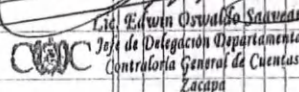 Lic. Edwin Oswaldo Saavedra
Jefe de Delegación Departamental
CGC Contraloría General de Cuentas
Zacapa